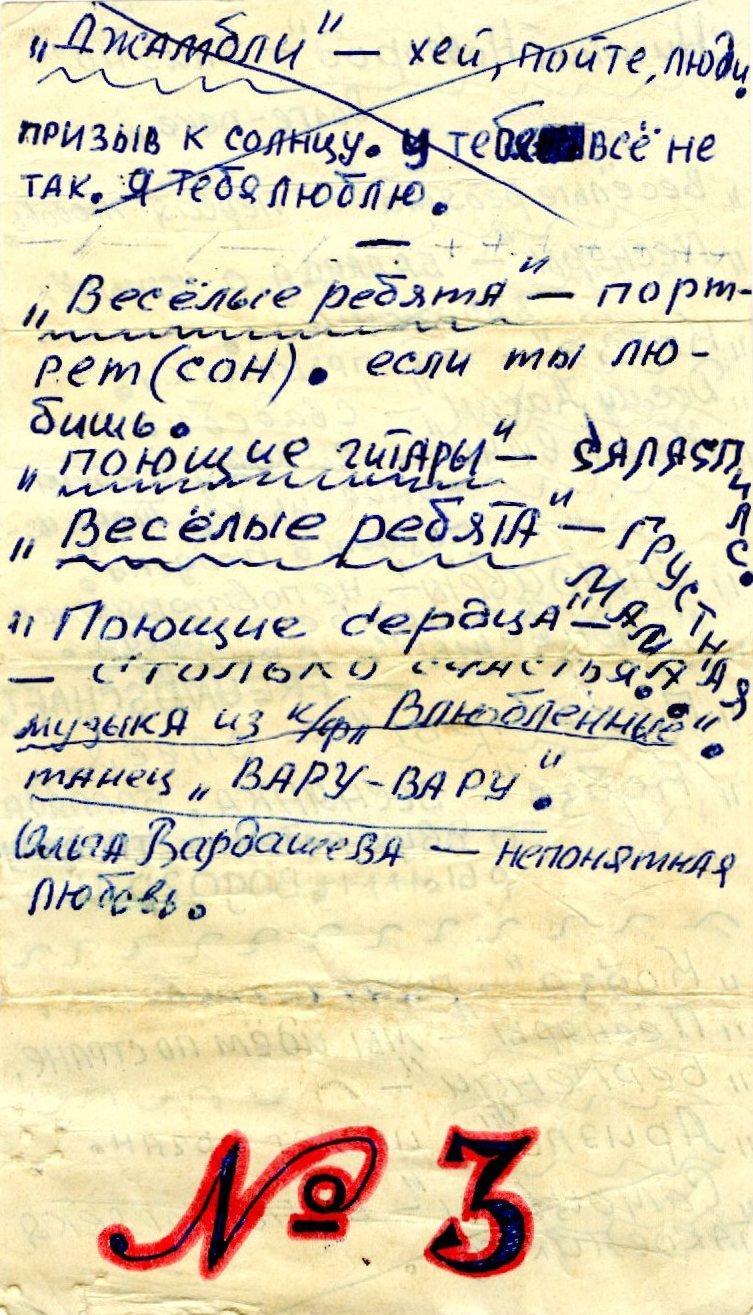 „Джамбли" — хей, пойте, люди.
призыв к солнцу. У тебя всё не
так. Я тебя люблю.
—
„Весёлые ребята" — порт-
рет (сон). если ты лю-
бишь.
„поющие гитары" — САЛАСПИЛС.
„Весёлые ребята" — ГРУСТНАЯ
„Поющие сердца" — МАМА.
— столько счастья.
музыка из к/ф „Влюблённые".
танец „ВАРУ-ВАРУ".
Ольга Вардашева — непонятная
любовь.
№ 3